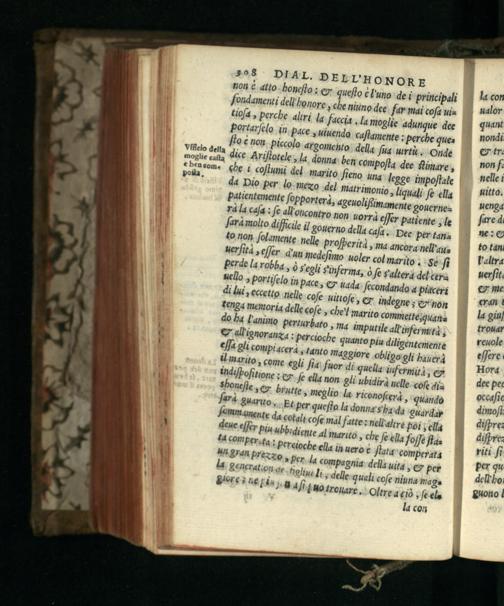 308 DIAL. DELL'HONORE
non è atto honesto: & questo è l'uno de i principali
fondamenti dell'honore, che niuno dee far mai cosa ui-
tiosa, perche altri la faccia. la moglie adunque dee
portarselo in pace, uiuendo castamente: perche que-
sto è non piccolo argomento della sua uirtù. Onde
dice Aristotele, la donna ben composta dee stimare,
che i costumi del marito sieno una legge impostale
da Dio per lo mezo del matrimonio, liquali se ella
patientemente sopporterà, ageuolissimamente gouerne-
rà la casa: se all'oncontro non uorrà esser patiente, le
sarà molto difficile il gouerno della casa. Dee per tan-
to non solamente nelle prosperità, ma ancora nell'au-
uersità, esser d'un medesimo uoler col marito. Se si
perde la robba, ò s'egli s'inferma, ò se s'altera del cer-
uello, portiselo in pace, & uada secondando a piaceri
di lui, eccetto nelle cose uitiose, & indegne; & non
tenga memoria delle cose, che'l marito commette, quan-
do ha l'animo perturbato, ma imputile all'infermità,
& all'ignoranza: percioche quanto piu diligentemente
essa gli compiacerà, tanto maggiore obligo gli hauerà
il marito, come egli sia fuor di quella infermità, &
indispositione: & se ella non gli ubidirà nelle cose di-
shoneste, & brutte, meglio la riconoscerà, quando
sarà guarito. Et per questo la donna s'ha da guardar
sommamente da cotali cose mal fatte: nell'altre poi, ella
deue esser piu ubbidiente al marito, che se ella fosse sta-
ta comperata: percioche ella in uero è stata comperata
un gran prezzo, per la compagnia della uita, & per
la generation de figliuoli, delle quali cose niuna mag-
giore si può trouare. Oltre a ciò, se el-
la con
Vfficio della
moglie casta
e ben com-
posta.
la con
ualor
quant
nondi
& tra
non se
uitto.
uenga
sare di
ne: &
to ne
l'altra
uersit
& me
eran t
la giu
trouar
reuole
essere
Hora
dee pe
occasio
dimost
disprez
disprez
riti si
per qu
dell'ho
guono l